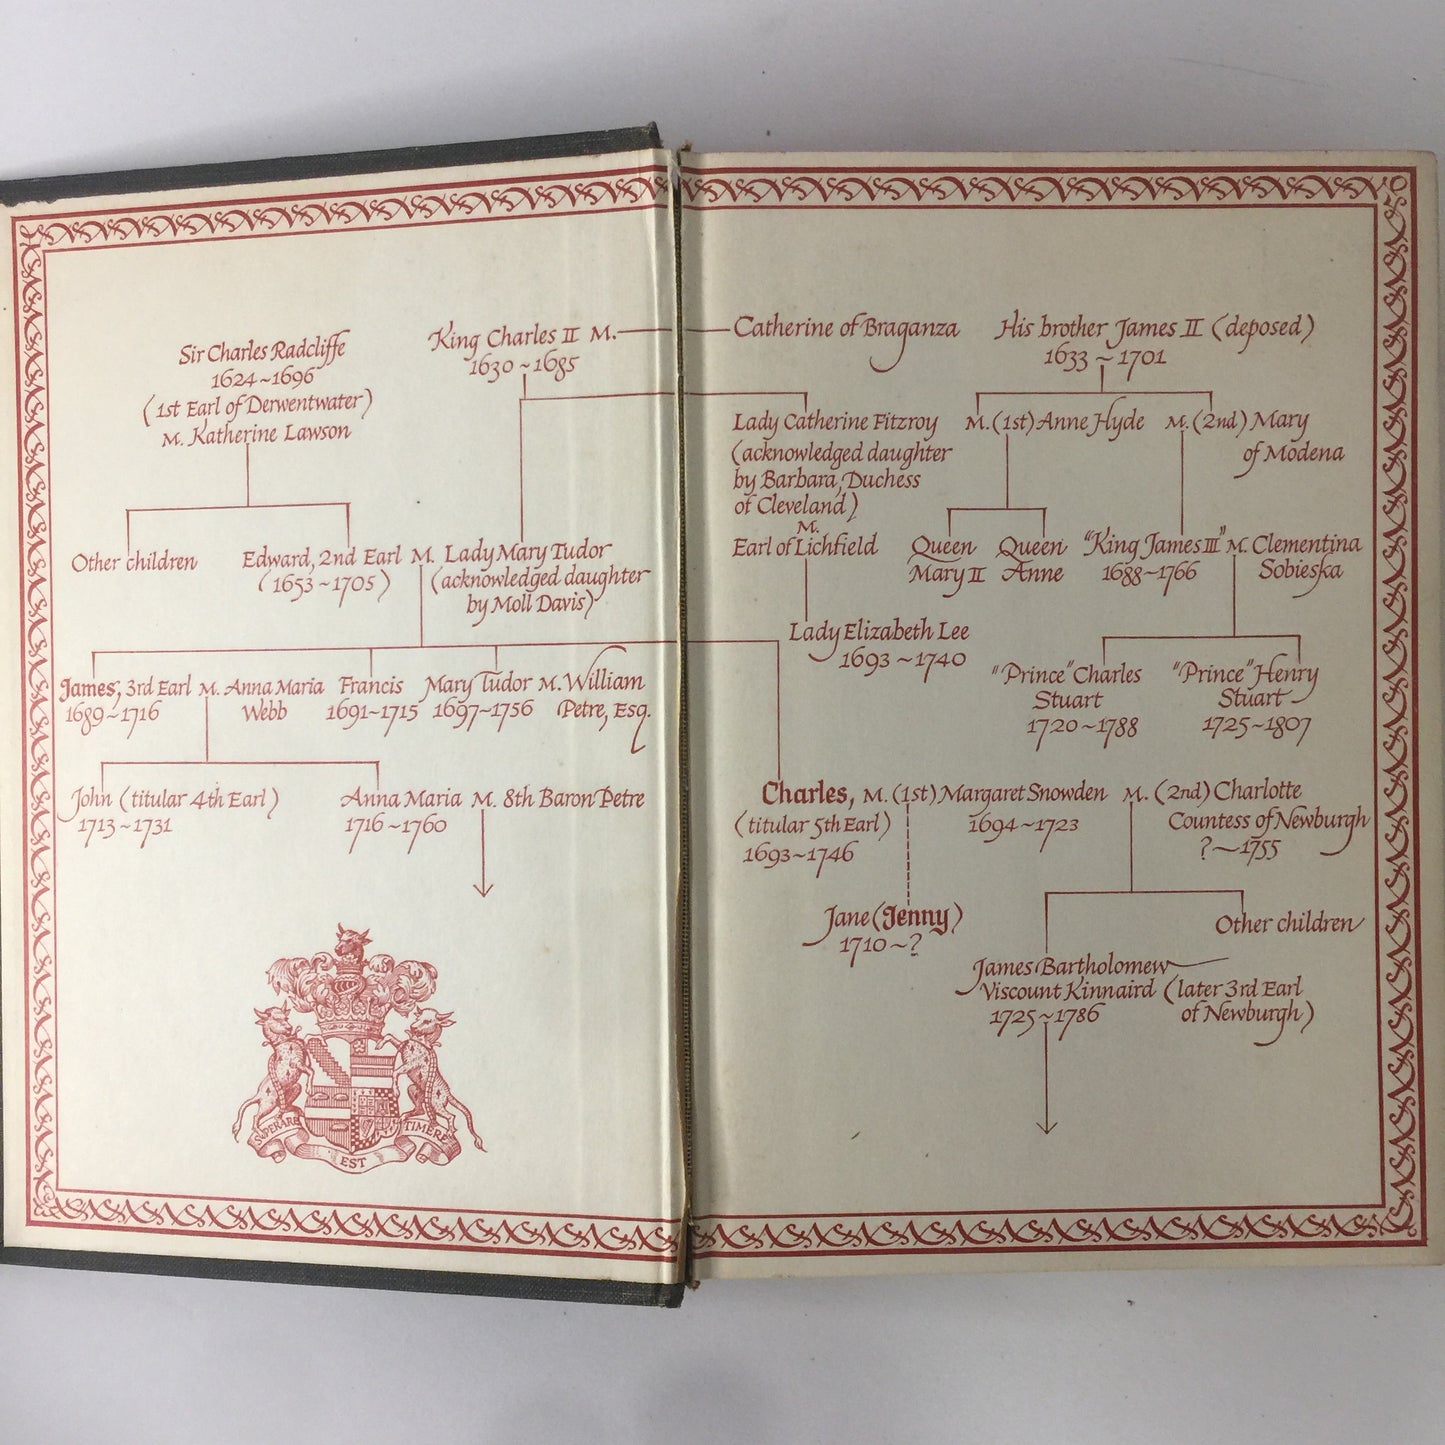 Sir Charles Radcliffe
1624~1696
(1st Earl of Derwentwater)
M. Katherine Lawson
King Charles II M.
1630~1685
Catherine of Braganza
His brother James II (deposed)
1633~1701
Lady Catherine Fitzroy
(acknowledged daughter
by Barbara, Duchess
of Cleveland)
M.
Earl of Lichfield
M. (1st) Anne Hyde
M. (2nd) Mary
of Modena
Other children
Edward, 2nd Earl M. Lady Mary Tudor
(1653~1705)
(acknowledged daughter
by Moll Davis)
Queen
Mary II
Queen
Anne
"King James III" M. Clementina
1688~1766
Sobieska
Lady Elizabeth Lee
1693~1740
James, 3rd Earl M. Anna Maria
1689~1716
Webb
Francis
1691~1715
Mary Tudor M. William
1697~1756
Petre, Esq.
"Prince" Charles
Stuart
1720~1788
"Prince" Henry
Stuart
1725~1807
John (titular 4th Earl)
1713~1731
Anna Maria M. 8th Baron Petre
1716~1760
Charles, M. (1st) Margaret Snowden
(titular 5th Earl)
1693~1746
1694~1723
M. (2nd) Charlotte
Countess of Newburgh
?~1755
Jane (Jenny)
1710~?
Other children
James Bartholomew
Viscount Kinnaird (later 3rd Earl
1725~1786
of Newburgh)
SUPERARE
EST
TIMERE